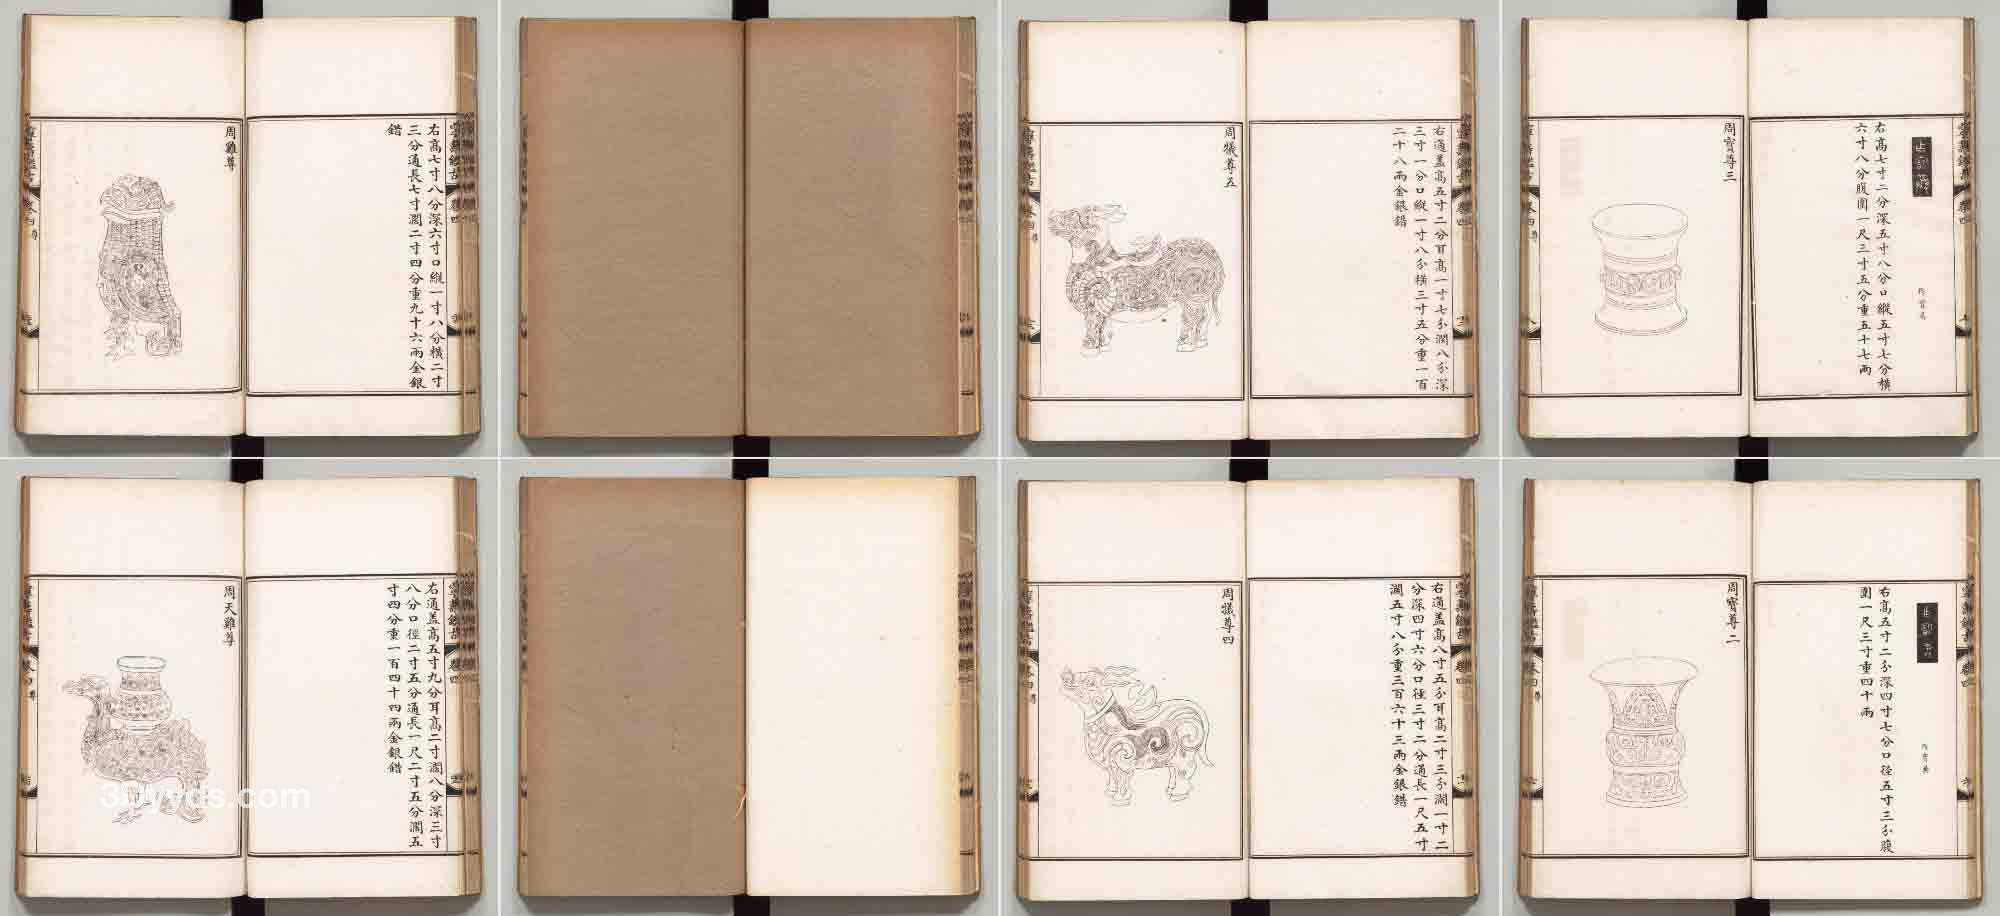 右高七寸八分深六寸口縱一寸八分橫二寸
三分通長七寸濶二寸四分重九十六兩金銀
錯
周雞尊
右通蓋高五寸二分耳高一寸七分濶八分深
三寸一分口縱一寸八分橫三寸五分重一百
二十八兩金銀錯
周犧尊五
右高七寸二分深五寸八分口縱五寸七分橫
六寸八分腹圍一尺三寸五分重五十七兩
周寶尊三
右通蓋高五寸九分耳高二寸濶八分深三寸
八分口徑二寸五分通長一尺二寸五分濶五
寸四分重一百四十四兩金銀錯
周天雞尊
3Dyyds.com
右通蓋高八寸五分耳高二寸三分濶一寸二
分深四寸六分口徑三寸二分通長一尺五寸
濶五寸八分重三百六十三兩金銀錯
周犧尊四
右高五寸二分深四寸七分口徑五寸三分腹
圍一尺三寸重四十兩
周寶尊二